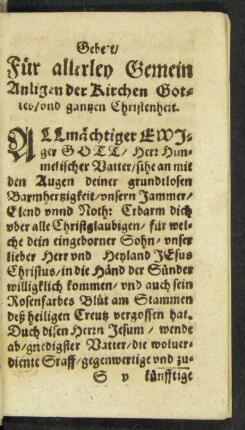 Gebet/
Für allerley Gemein
Anligen der Kirchen Got-
tes/vnd gantzen Christenheit.
ALLmächtiger EWI-
ger GOTT/ Herr Him-
melischer Vatter/sihe an mit
den Augen deiner grundtlosen
Barmhertzigkeit/vnsern Jammer/
Elend vnnd Noth: Erbarm dich
vber alle Christglaubigen/ für wel-
che dein eingeborner Sohn/ vnser
lieber Herr vnd Heyland JEsus
Christus/in die Händ der Sünder
willigklich kommen/ vnd auch sein
Rosenfarbes Blüt am Stammen
deß heiligen Creutz vergossen hat.
Duch disen Herrn Jesum/ wende
ab/gnedigster Vatter/die wolver-
diente Sraff/gegenwertige vnd zu-
S v künfftige